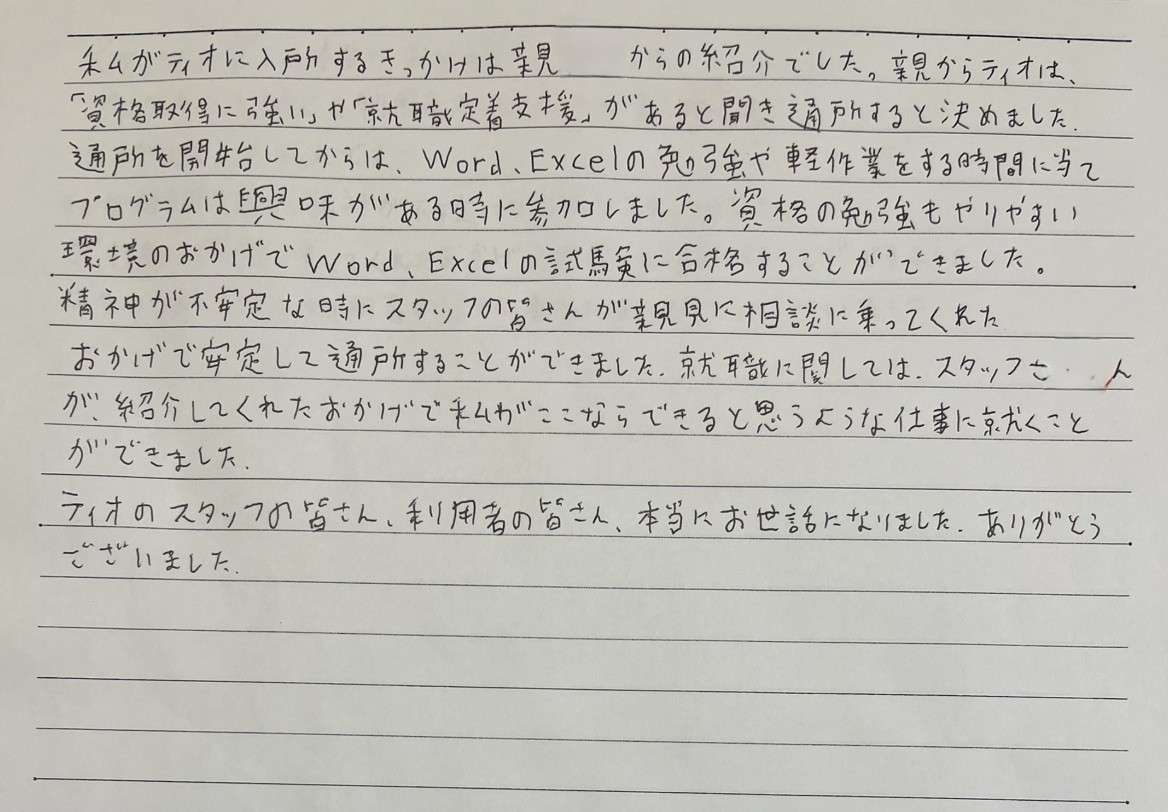 私がティオに入所するきっかけは親 からの紹介でした。親からティオは、
「資格取得に強い」や「就職定着支援」があると聞き通所すると決めました.
通所を開始してからは、Word、Excelの勉強や軽作業をする時間に当て
プログラムは興味がある時に参加しました。資格の勉強もやりやすい
環境のおかげでWord、Excelの試験に合格することができました。
精神が不安定な時にスタッフの皆さんが親見に相談に乗ってくれた
おかげで安定して通所することができました.就職に関しては、スタッフさ ん
が、紹介してくれたおかげで私がここならできると思うような仕事に就くこと
ができました.
ティオのスタッフの皆さん、利用者の皆さん、本当にお世話になりました.ありがとう
ございました.